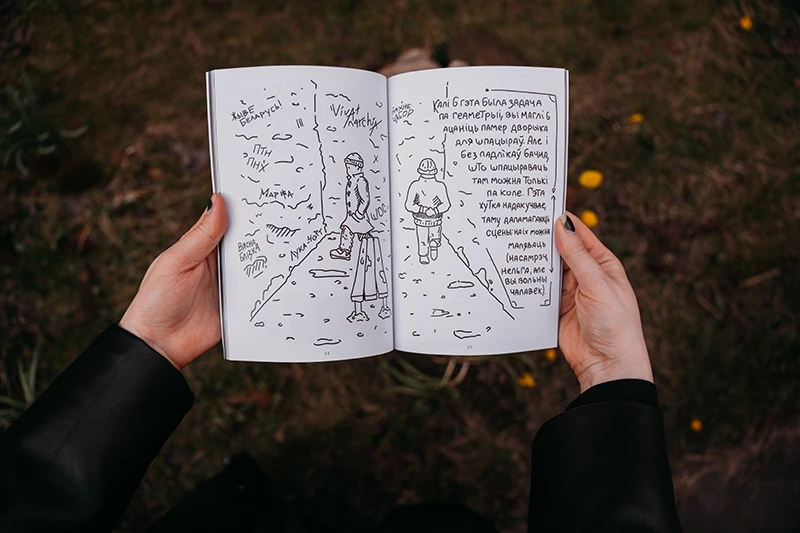 ЖЫВЕ
БЕЛАРУСЬ!
ПТН
ПНХ
МАРЖА
ВЯСНА
БЛІЗКА
VIVA
ANARCHIA
ЛУКА-НОРТ
ШОС
КАЛІ Б ГЭТА БЫЛА ЗАДАЧА
ПА ГЕАМЕТРЫІ, ВЫ МАГЛІ Б
АЦАНІЦЬ ПАМЕР ДВОРЫКА
ДЛЯ ШПАЦЫРАЎ. АЛЕ І
БЕЗ ПАДЛІКАЎ БАЧНА,
ШТО ШПАЦЫРАВАЦЬ
ТАМ МОЖНА ТОЛЬКІ
ПА КОЛЕ. ГЭТА
ХУТКА НАДАКУЧВАЕ,
ТАМУ ДАПАМАГАЮЦЬ
СЦЕНЫ НА ІХ МОЖНА
МАЛЯВАЦЬ
(НАСАМРЭЧ,
НЕЛЬГА, АЛЕ
ВЫ ВОЛЬНЫ
ЧАЛАВЕК)